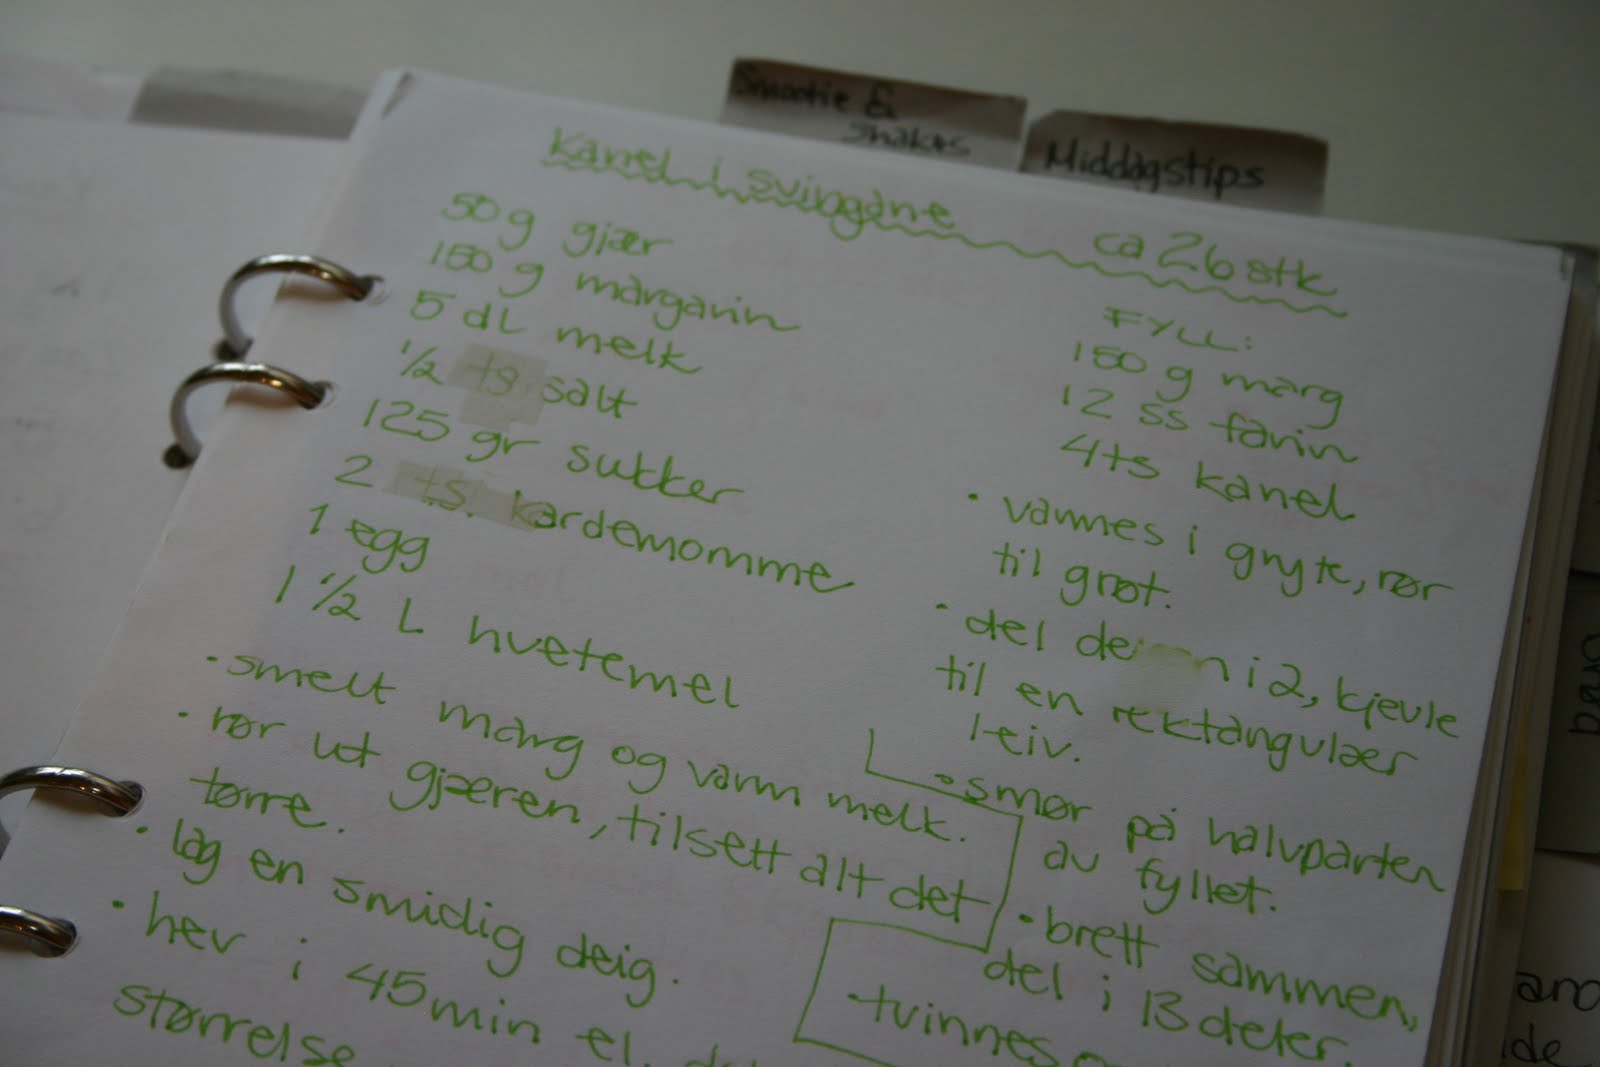 Smootie &
shakes
Middagstips
Kanel i svingane ca 26 stk
50 g gjær
150 g margarin
5 dL melk
1/2 ts salt
125 gr sukker
2 ts. kardemomme
1 egg
1 1/2 L hvetemel
• smelt marg og varm melk.
• rør ut gjæren, tilsett alt det
tørre.
• lag en smidig deig.
• hev i 45 min el.
størrelse
FYLL:
150 g marg
12 ss farin
4 ts kanel
• varmes i gryte, rør
til grøt.
• del deigen i 2, kjevle
til en rektangulær
leiv.
• smør på halvparten
av fyllet.
• brett sammen,
del i 13 deler.
• tvinnes